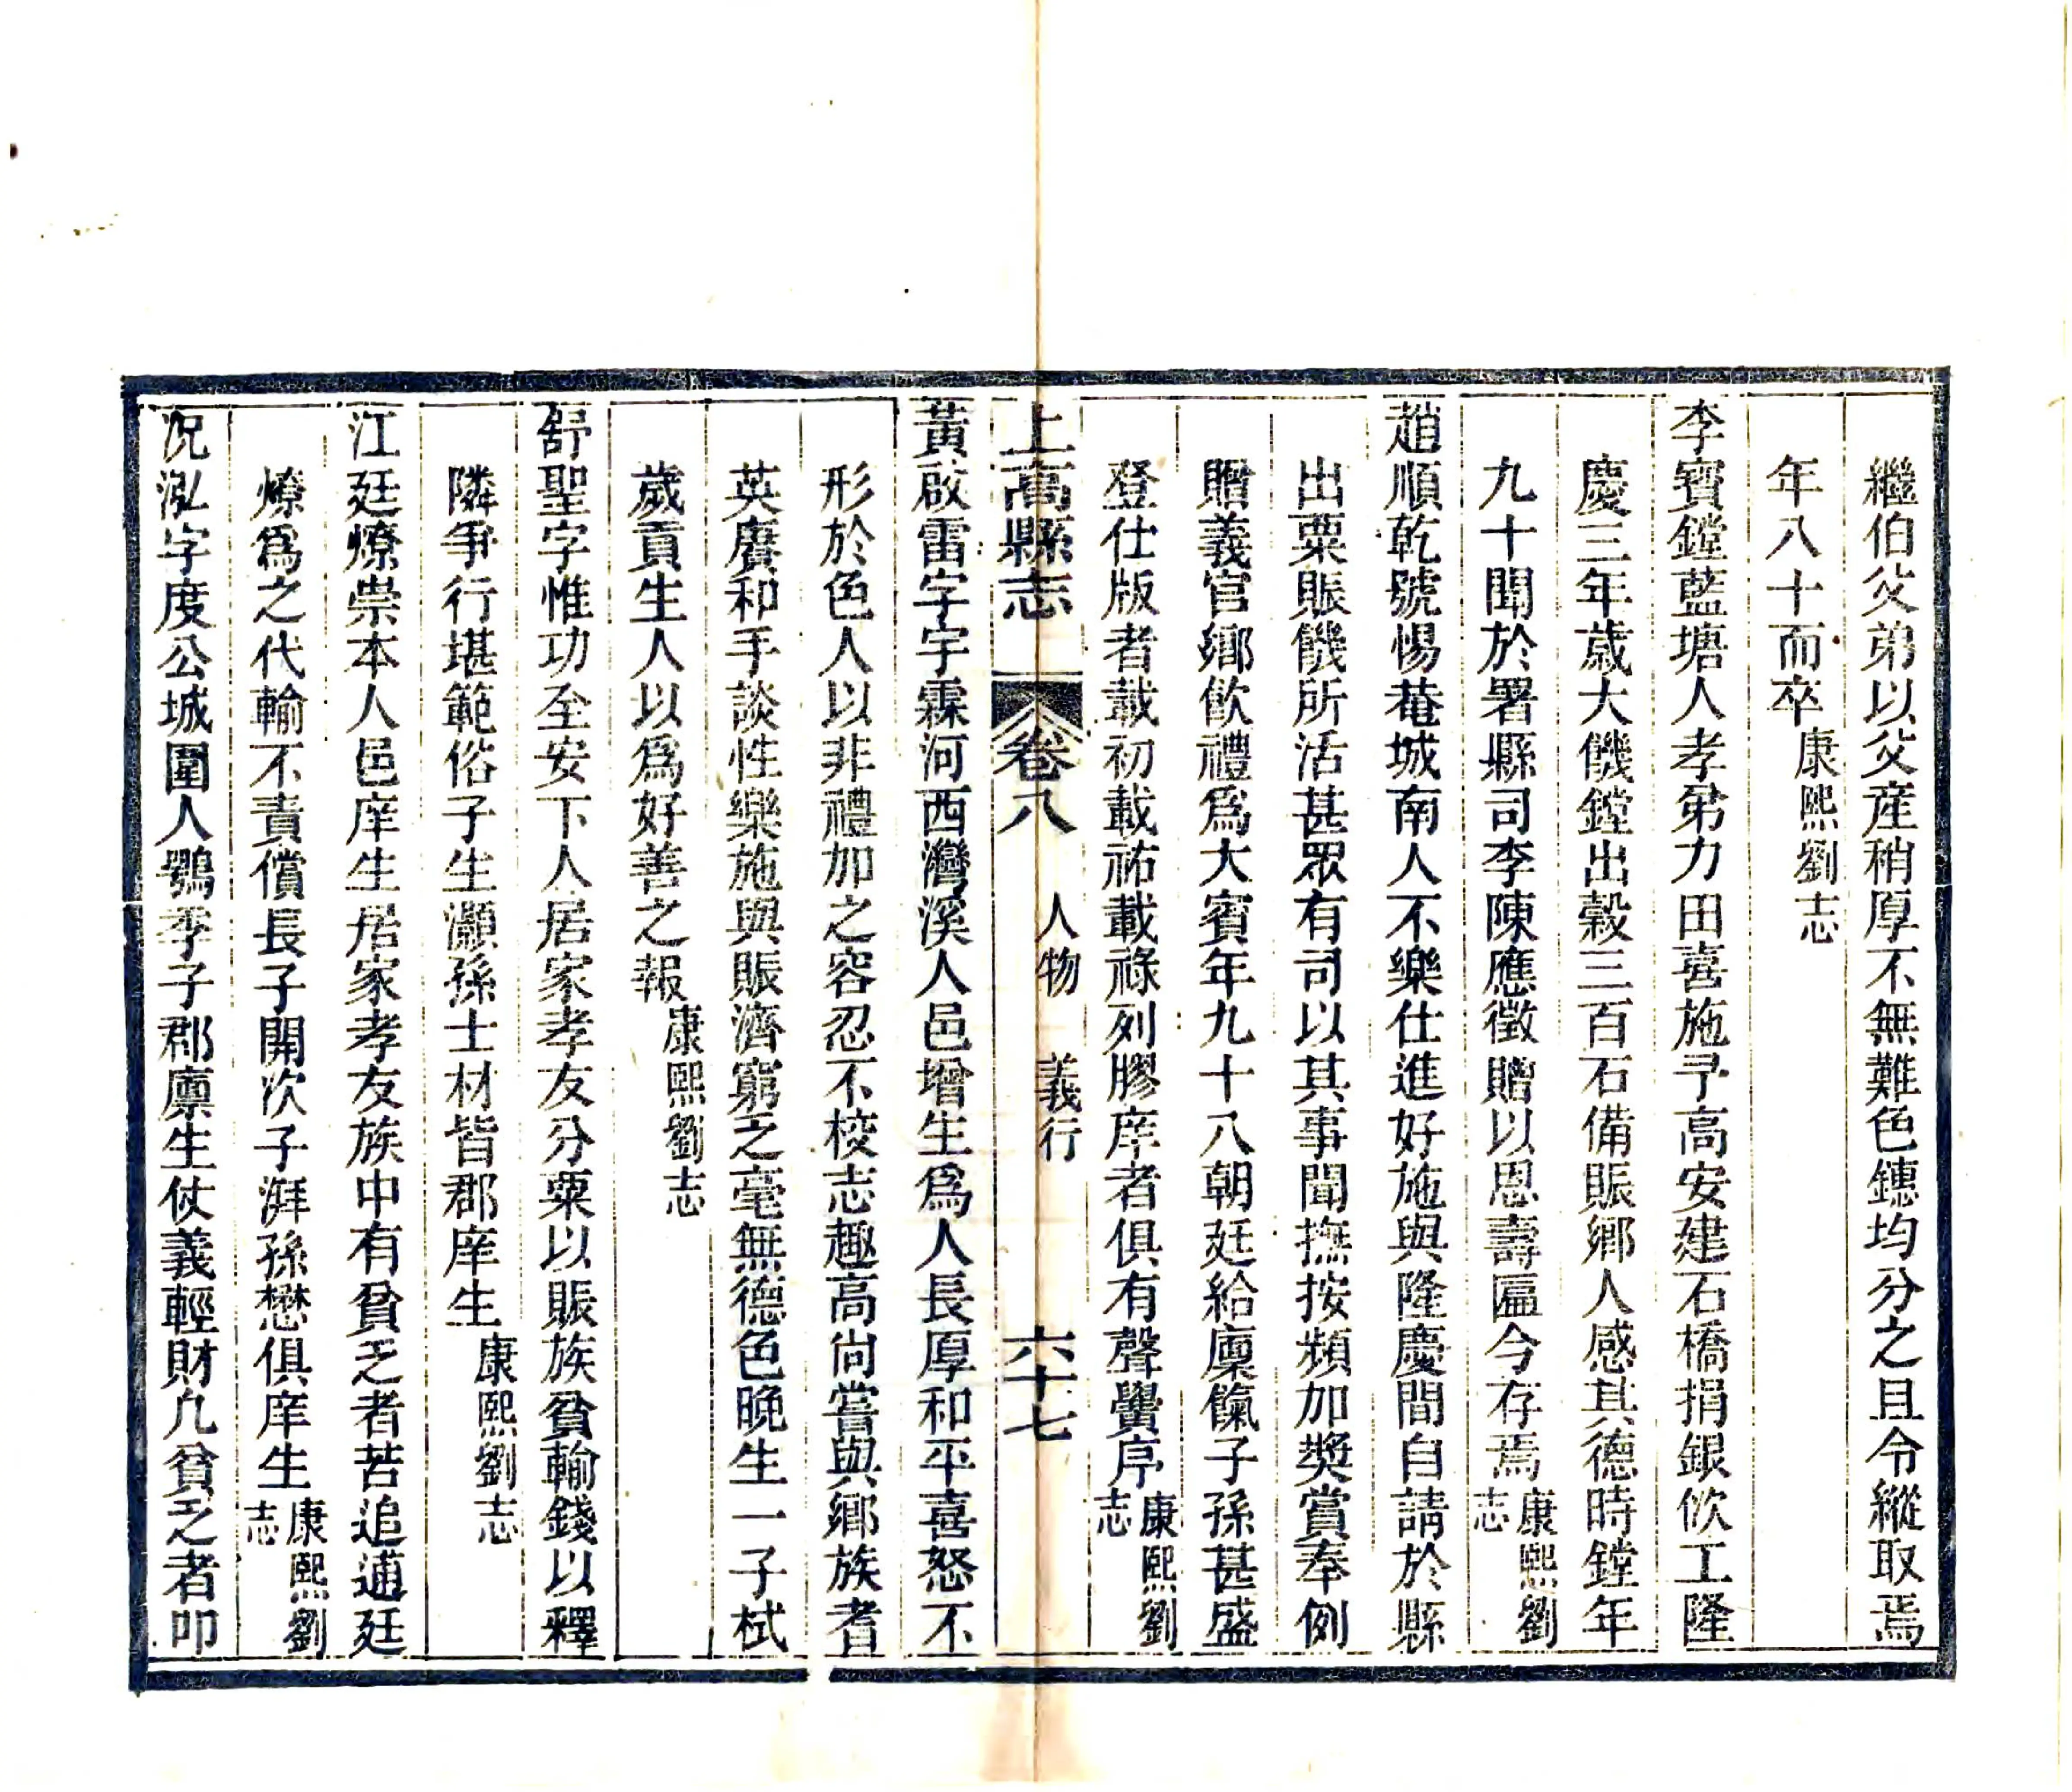 繼伯父弟以父産稍厚不無難色鏸均分之且令縱取焉
年八十而卒康熙劉志
李寳鏜藍塘人孝弟力田喜施予高安建石橋捐銀佽工隆
慶三年歳大饑鏜出穀三百石備賑鄉人感其德時鏜年
九十聞於署縣司李陳應徵贈以恩壽匾今存焉康熙劉志
趙順乾號惕菴城南人不樂仕進好施與隆慶間自請於縣
出粟賑饑所活甚眾有司以其事聞撫按頻加奬賞奉例
贈義官鄉飲禮爲大賓年九十八朝廷給廩餼子孫甚盛
登仕版者載初載祐載祿列膠庠者俱有聲黌序康熙劉志
上高縣志 卷八 人物 義行 六十七
黃啟雷字宇霖河西灣溪人邑增生爲人長厚和平喜怒不
形於色人以非禮加之容忍不校志趣高尚嘗與鄉族耆
英賡和手談性樂施與賑濟窮乏毫無德色晚生一子栻
歲貢生人以爲好善之報康熙劉志
舒聖字惟功至安下人居家孝友分粟以賑族貧輸錢以釋
隣爭行堪範俗子生灝孫士材皆郡庠生康熙劉志
江廷燎崇本人邑庠生居家孝友族中有貧乏者苦追逋廷
燎爲之代輸不責償長子開次子湃孫懋俱庠生康熙劉志
况泓字度公城圍人鶚季子郡廪生仗義輕財凢貧乏者叩